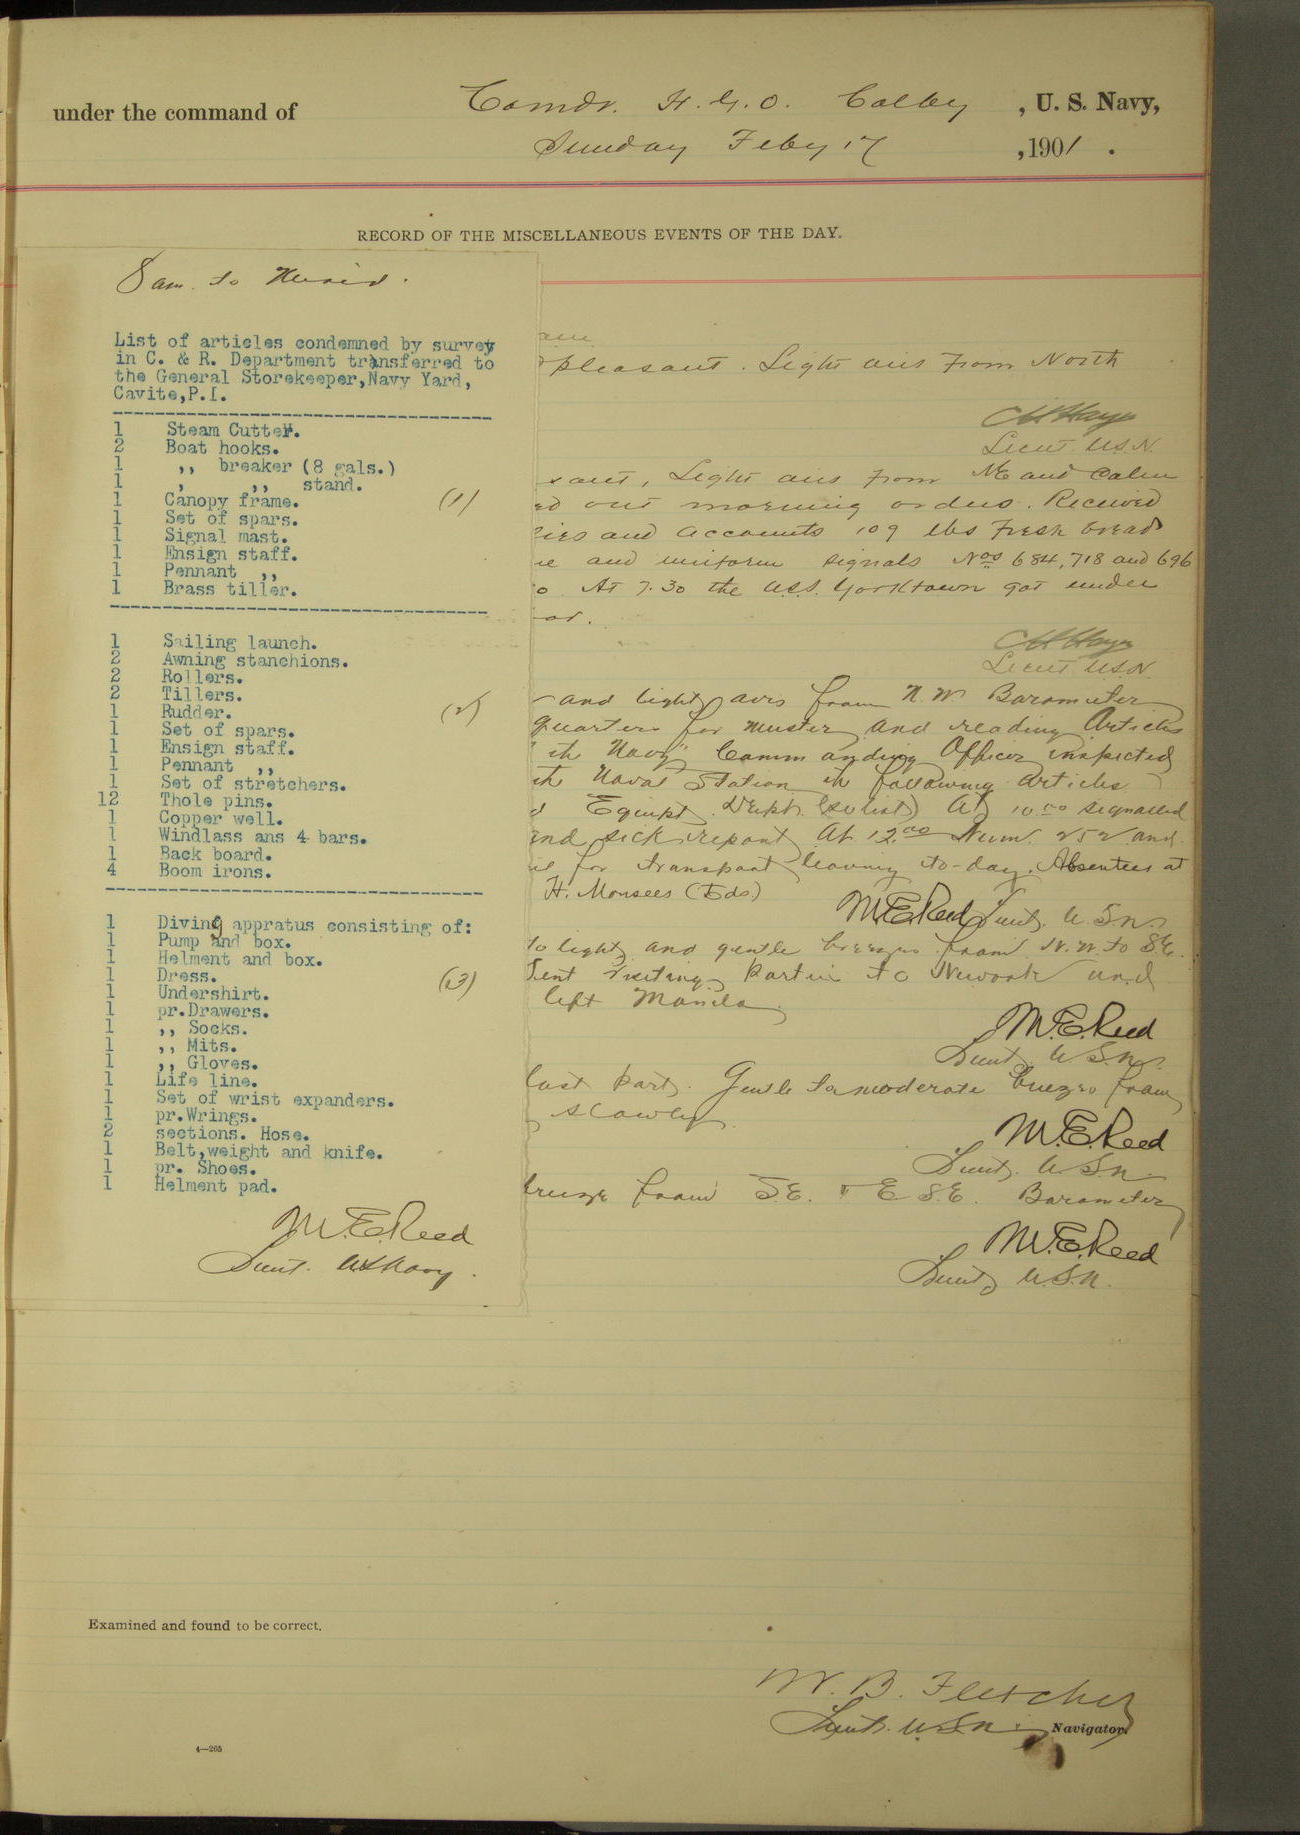 under the command of Comdr. H. G. O. Colby, U. S. Navy,
Sunday Feby 17, 1901.
RECORD OF THE MISCELLANEOUS EVENTS OF THE DAY.
8 am. to Merid.
List of articles condemned by survey
in C. & R. Department transferred to
the General Storekeeper,Navy Yard,
Cavite,P.I.
1 Steam Cutter.
2 Boat hooks.
1 ,, breaker (8 gals.)
1 , ,, stand.
1 Canopy frame. (1)
1 Set of spars.
1 Signal mast.
1 Ensign staff.
1 Pennant ,,
1 Brass tiller.
1 Sailing launch.
2 Awning stanchions.
2 Rollers.
2 Tillers.
1 Rudder. (2)
1 Set of spars.
1 Ensign staff.
1 Pennant ,,
1 Set of stretchers.
12 Thole pins.
1 Copper well.
1 Windlass ans 4 bars.
1 Back board.
4 Boom irons.
1 Diving appratus consisting of:
1 Pump and box.
1 Helment and box.
1 Dress. (3)
1 Undershirt.
1 pr.Drawers.
1 ,, Socks.
1 ,, Mits.
1 ,, Gloves.
1 Life line.
1 Set of wrist expanders.
1 pr.Wrings.
2 sections. Hose.
1 Belt,weight and knife.
1 pr. Shoes.
1 Helment pad.
M. E. Reed
Lieut. U S Navy.
pleasant. Light airs from North
Lieut. U.S.N.
Light airs from NE and Calm
out morning orders. Received
and accounts 109 lbs Fresh bread
and uniform signals Nos 684, 718 and 696
At 7.30 the U.S.S. Yorktown got under
Lieut U.S.N.
and light airs from N.W. Barometer
quarters for muster and reading Articles
Navy" Commanding Officer inspected
Naval Station the following articles
Equipt. Dept. (see list) At 10.00 signalled
and sick report. At 12.00 Num. 252 and
for transport leaving to-day. Absentees at
H. Monsees (Eds.)
M. E. Reed Lieut. U.S.N.
to light and gentle breezes from N.W. to S.E.
Sent visiting parties to Newark and
left Manila.
M. E. Reed
Lieut. U.S.N.
last part. Gentle to moderate breezes from
slowly.
M. E. Reed
Lieut. U.S.N.
breeze from S.E. E S.E. Barometer
M. E. Reed
Lieut. U.S.N.
Examined and found to be correct.
W. B. Fletcher
Lieut. U.S.N. Navigator.
4—265